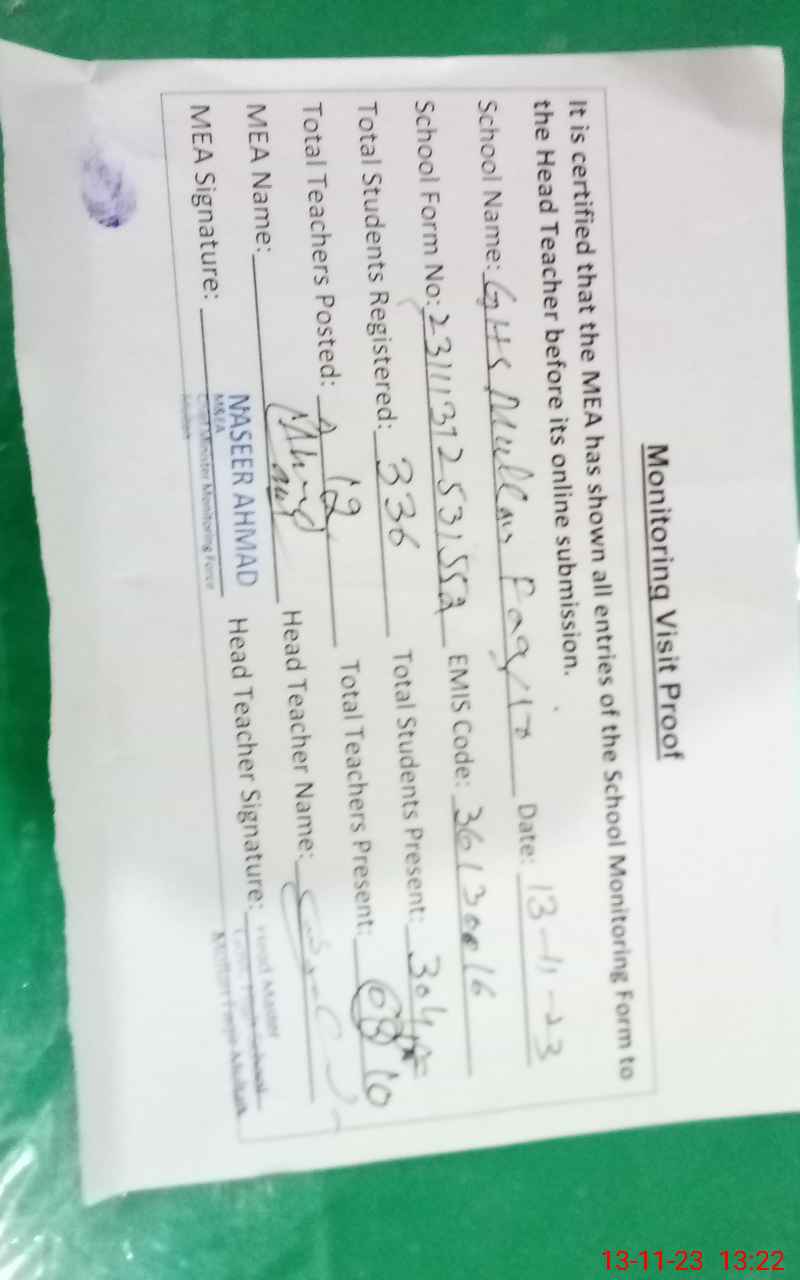 Monitoring Visit Proof
It is certified that the MEA has shown all entries of the School Monitoring Form to
the Head Teacher before its online submission.
School Name: GHS Date: 13-11-23
School Form No: EMIS Code: 36130016
Total Students Registered: 336 Total Students Present: 304
Total Teachers Posted: 12 Total Teachers Present: 10
MEA Name: Head Teacher Name:
MEA Signature: NASEER AHMAD Head Teacher Signature:
M&EA
Chief Minister Monitoring Force
Multan
Head Master
13-11-23 13:22